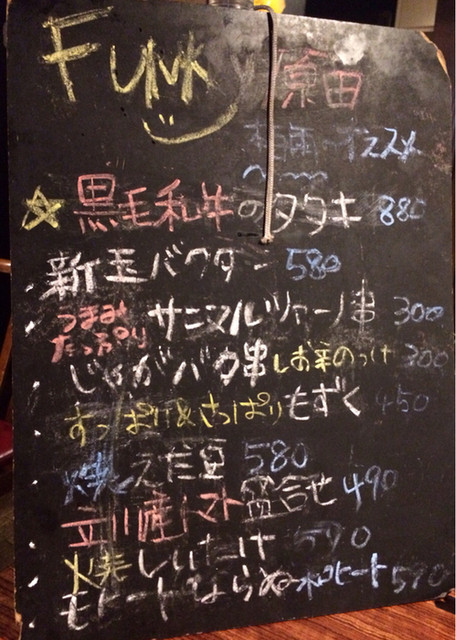 Funky 原田
梅雨のオススメ
☆黒毛和牛のタタキ 880
新玉バクダン 580
つまみ
たっぷり サニーマルゲリータ串 300
じゃがバタ串 しお辛のっけ 300
すっぱり&さっぱりもずく 450
焼きえだ豆 580
立川産トマト盛合せ 490
火焼しいたけ 590
モヒートならぬ和ヒート 590